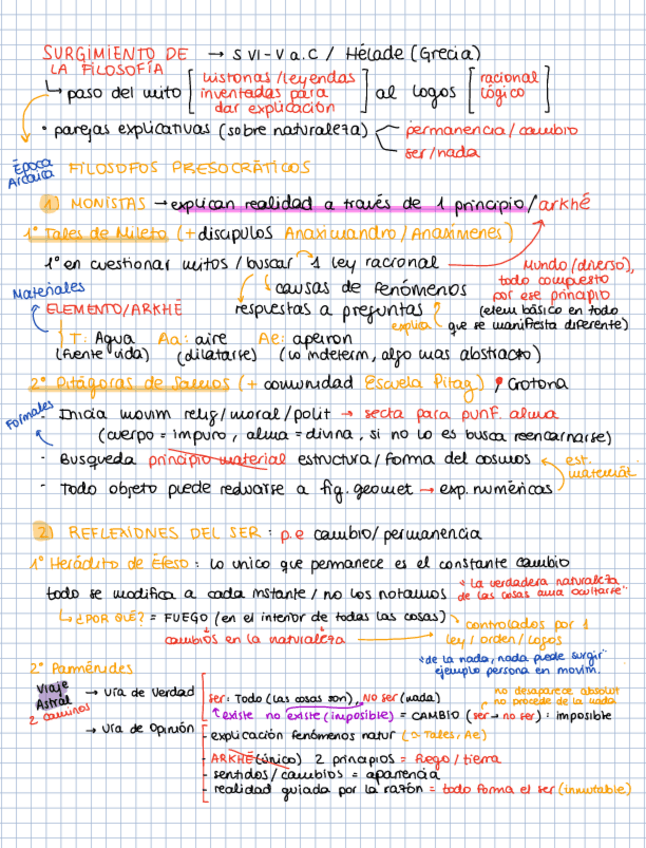 SURGIMIENTO DE LA FILOSOFÍA → S VI-V a.C / Hélade (Grecia)
↳ paso del mito [historias/leyendas inventadas para dar explicación] al logos [racional lógico]
• parejas explicativas (sobre naturaleza) permanencia/cambio
ser/nada
Época Arcaica
FILOSOFOS PRESOCRÁTICOS
1) MONISTAS → explican realidad a través de 1 principio/arkhé
1º Tales de Mileto (+ discipulos Anaximandro/Anaxímenes)
1º en cuestionar mitos / buscar 1 ley racional
causas de fenómenos
respuestas a preguntas
explica
Mundo (diverso),
todo compuesto
por ese principio
(elem básico en todo
que se manifiesta diferente)
Materiales
ELEMENTO/ARKHÉ
T: Agua Aa: aire Ae: apeiron
(fuente vida) (dilatarse) (lo indeterm, algo mas abstracto)
2º Pitágoras de Samos (+ comunidad Escuela Pitag) Crotona
Formales
- Inicia movim relig/moral/polit → secta para purif. alma
(cuerpo = impuro, alma = divina, si no lo es busca reencarnarse)
- Busqueda principio material estructura/forma del cosmos
est. material
- Todo objeto puede reducirse a fig. geomet → exp. numéricas
2) REFLEXIONES DEL SER: p.e cambio/permanencia
1º Heráclito de Éfeso: lo unico que permanece es el constante cambio
todo se modifica a cada instante / no los notamos
"La verdadera naturaleza
de las cosas ama ocultarse"
↳ ¿POR QUÉ? = FUEGO (en el interior de todas las cosas)
cambios en la naturaleza
controlados por 1
ley/orden/logos
2º Parménides
"de la nada, nada puede surgir"
ejemplo persona en movim.
Viaje Astral
2 caminos
→ Vía de Verdad
ser: Todo (las cosas son), NO ser (nada)
no desaparece absolut
no procede de la nada
existe no existe (imposible) = CAMBIO (ser → no ser): imposible
→ Vía de Opinión
- explicación fenómenos natur (Tales, Ae)
- ARKHÉ (único) 2 principios = fuego/tierra
- sentidos/cambios = apariencia
- realidad guiada por la razón = todo forma el ser (inmutable)